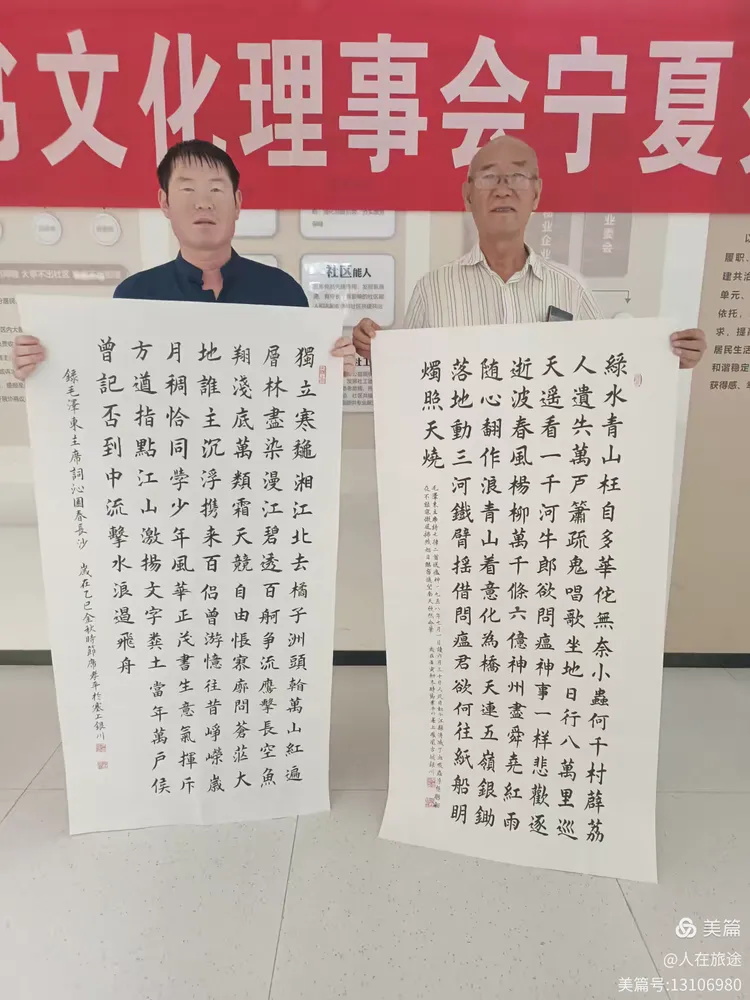 书文化理事会宁夏
社区能人
业委会
履职、
建共治
单元、
依托,
求、提高
居民生活
和谐稳定
获得感、
獨立寒龝湘江北去橘子洲頭翰萬山紅遍
層林盡染漫江碧透百舸争流鷹擊長空魚
翔淺底萬類霜天競自由悵寥廓問蒼茫大
地誰主沉浮携来百侣曾游憶往昔崢嶸歲
月稠恰同學少年風華正茂書生意氣揮斥
方遒指點江山激揚文字糞土當年萬戶侯
曾記否到中流擊水浪遏飛舟
錄毛澤東主席詞沁園春長沙 歲在乙巳金秋時節席孝平於塞上銀川
綠水青山枉自多華佗無奈小蟲何千村薜荔
人遺失萬戸簫疏鬼唱歌坐地日行八萬里巡
天遥看一千河牛郎欲問瘟神事一樣悲歡逐
逝波春風楊柳萬千條六億神州盡舜堯紅雨
随心翻作浪青山着意化為橋天連五嶺銀鋤
落地動三河鐵臂摇借問瘟君欲何往紙船明
燭照天燒
美篇
@人在旅途
美篇号:13106980